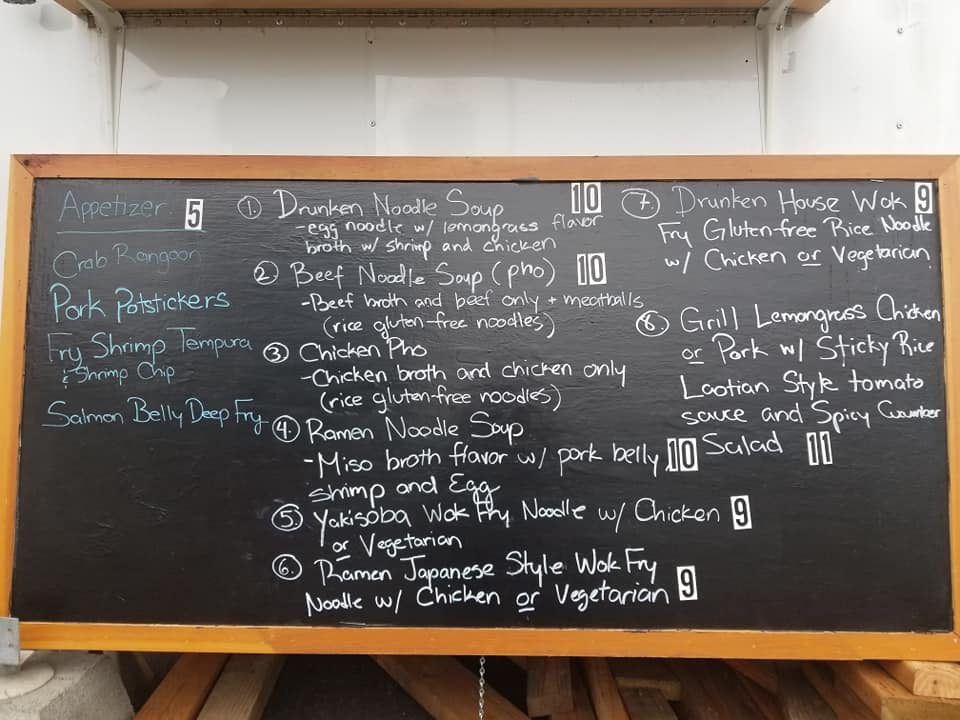 Appetizer 5
Crab Rangoon
Pork Potstickers
Fry Shrimp Tempura
& Shrimp Chip
Salmon Belly Deep Fry
① Drunken Noodle Soup 10
-egg noodle w/ lemongrass flavor
broth w/ shrimp and chicken
② Beef Noodle Soup (pho) 10
-Beef broth and beef only + meatballs
(rice gluten-free noodles)
③ Chicken Pho
-Chicken broth and chicken only
(rice gluten-free noodles)
④ Ramen Noodle Soup
-Miso broth flavor w/ pork belly 10
shrimp and Egg
⑤ Yakisoba Wok Fry Noodle w/ Chicken 9
or Vegetarian
⑥ Ramen Japanese Style Wok Fry
Noodle w/ Chicken or Vegetarian 9
⑦ Drunken House Wok 9
Fry Gluten-free Rice Noodle
w/ Chicken or Vegetarian
⑧ Grill Lemongrass Chicken
or Pork w/ Sticky Rice
Laotian Style tomato
sauce and Spicy Cucumber
Salad 11